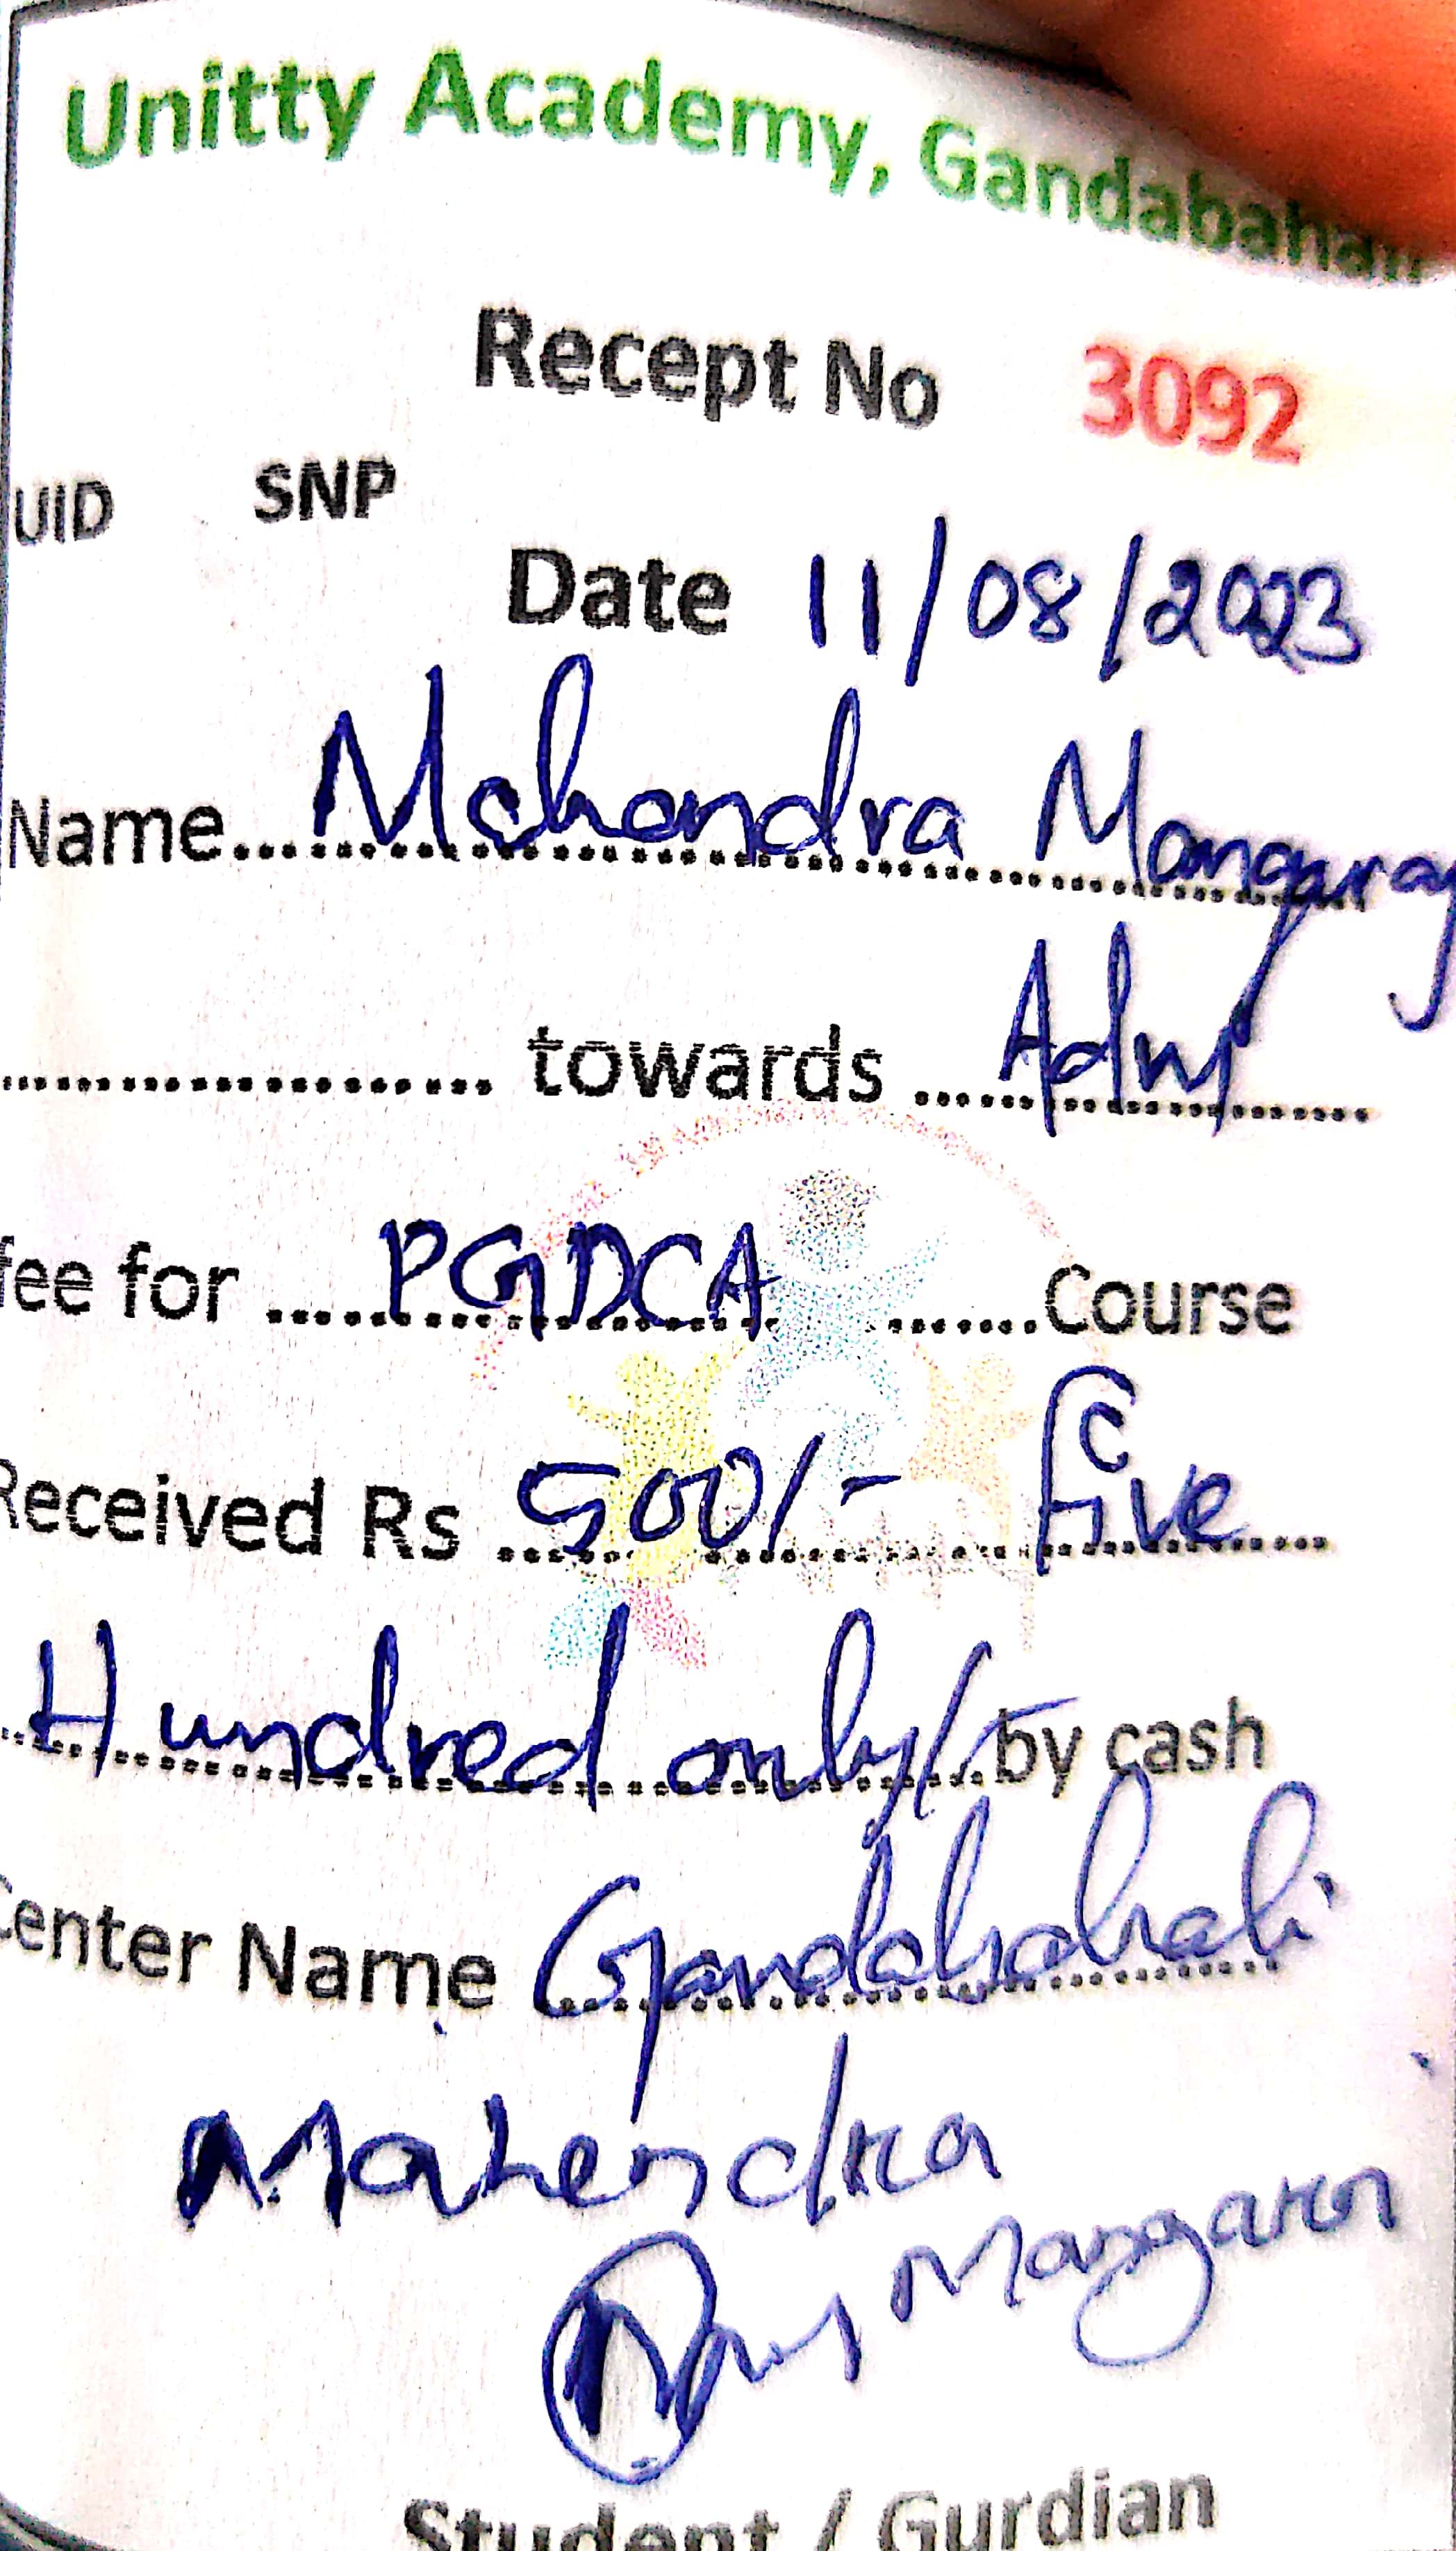 Unitty Academy, Gandabahali
Recept No 3092
UID SNP
Date 11/08/2023
Name........ Mahendra Mangaraj
........ towards ........ Adm
fee for ........ PGDCA ........ Course
Received Rs ........ 500/- Five ........
........ Hundred only/- ........ by cash
Center Name Gandabahali
Mahendra
Mangaraj
Student / Gurdian